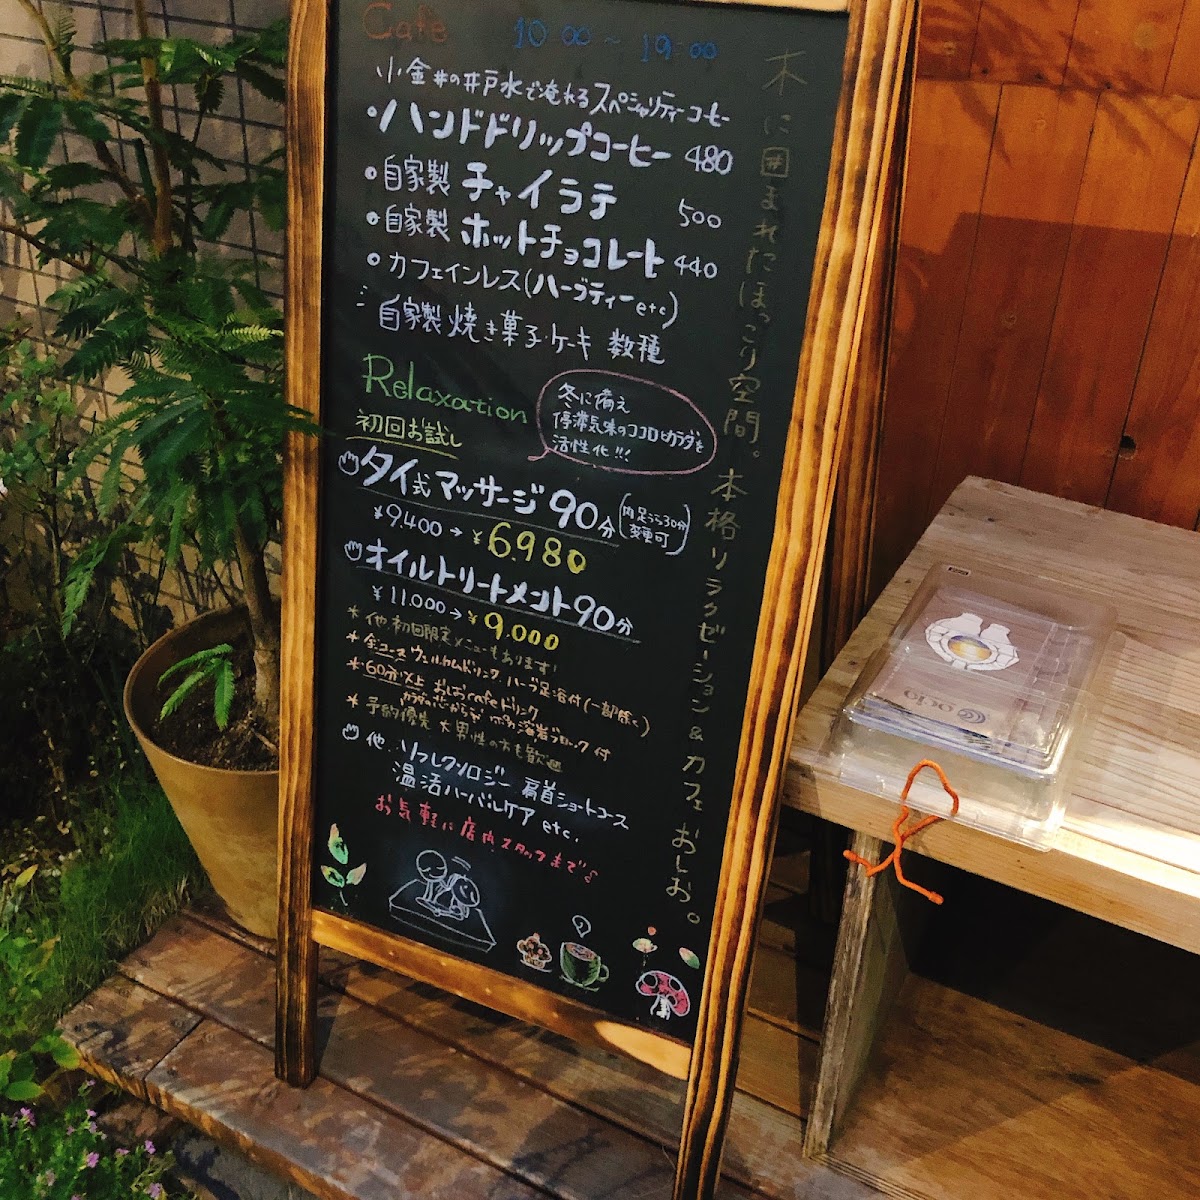 Cafe 10:00~19:00
小金井の井戸水で淹れるスペシャリティーコーヒー
・ハンドドリップコーヒー 480
・自家製 チャイラテ 500
・自家製 ホットチョコレート 440
・カフェインレス(ハーブティーetc)
自家製焼き菓子・ケーキ 数種
Relaxation
冬に備え
停滞気味のココロとカラダを
活性化!!!
初回お試し
タイ式マッサージ90分
(内足うら30分
変更可)
¥9.400→¥6.980
オイルトリートメント90分
¥11.000→¥9.000
*他、初回限定メニューもあります!
*全コース ウェルカムドリンク ハーブ足浴付(一部除く)
*60分以上 おしおcafeドリンク
カラダの芯からポカポカ 溶岩ブロック付
*予約優先 *男性の方も歓迎
他..リフレクソロジー 肩首ショートコース
温活ハーバルケア etc.
お気軽に店内スタッフまで♪
木に囲まれたほっこり空間。本格リラクゼーション&カフェ おしお。
ocio